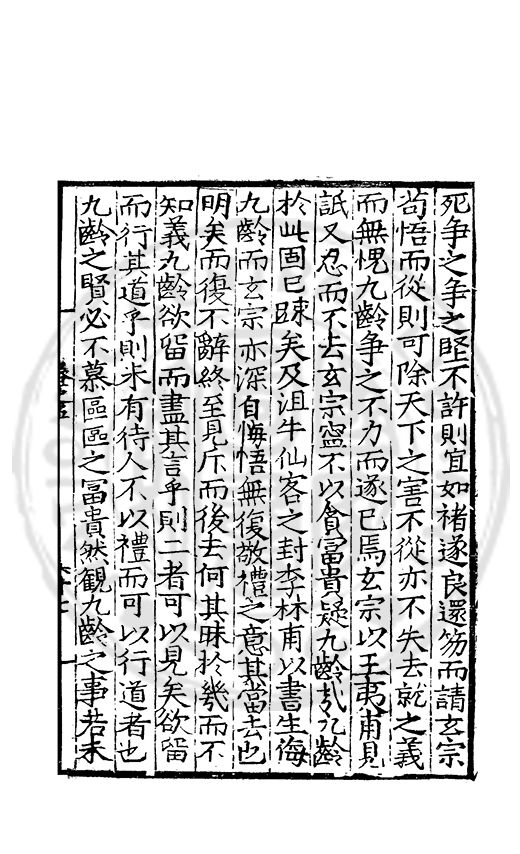 死争之争之堅不許則宜如褚遂良還笏而請玄宗
茍悟而從則可除天下之害不從亦不失去就之義
而無愧九齡争之不力而遂已焉玄宗以王夷甫見
詆又忍而不去玄宗寧不以貪冨貴疑九齡㢤九齡
於此固已踈矣及沮牛仙客之封李林甫以書生侮
九齡而玄宗亦深自悔悟無復敬禮之意其當去也
明矣而復不辭終至見斥而後去何其昧於幾而不
知義九齡欲留而盡其言乎則二者可以見矣欲留
而行其道乎則未有待人不以禮而可以行道者也
九齡之賢必不慕區區之冨貴然観九齡之事若未